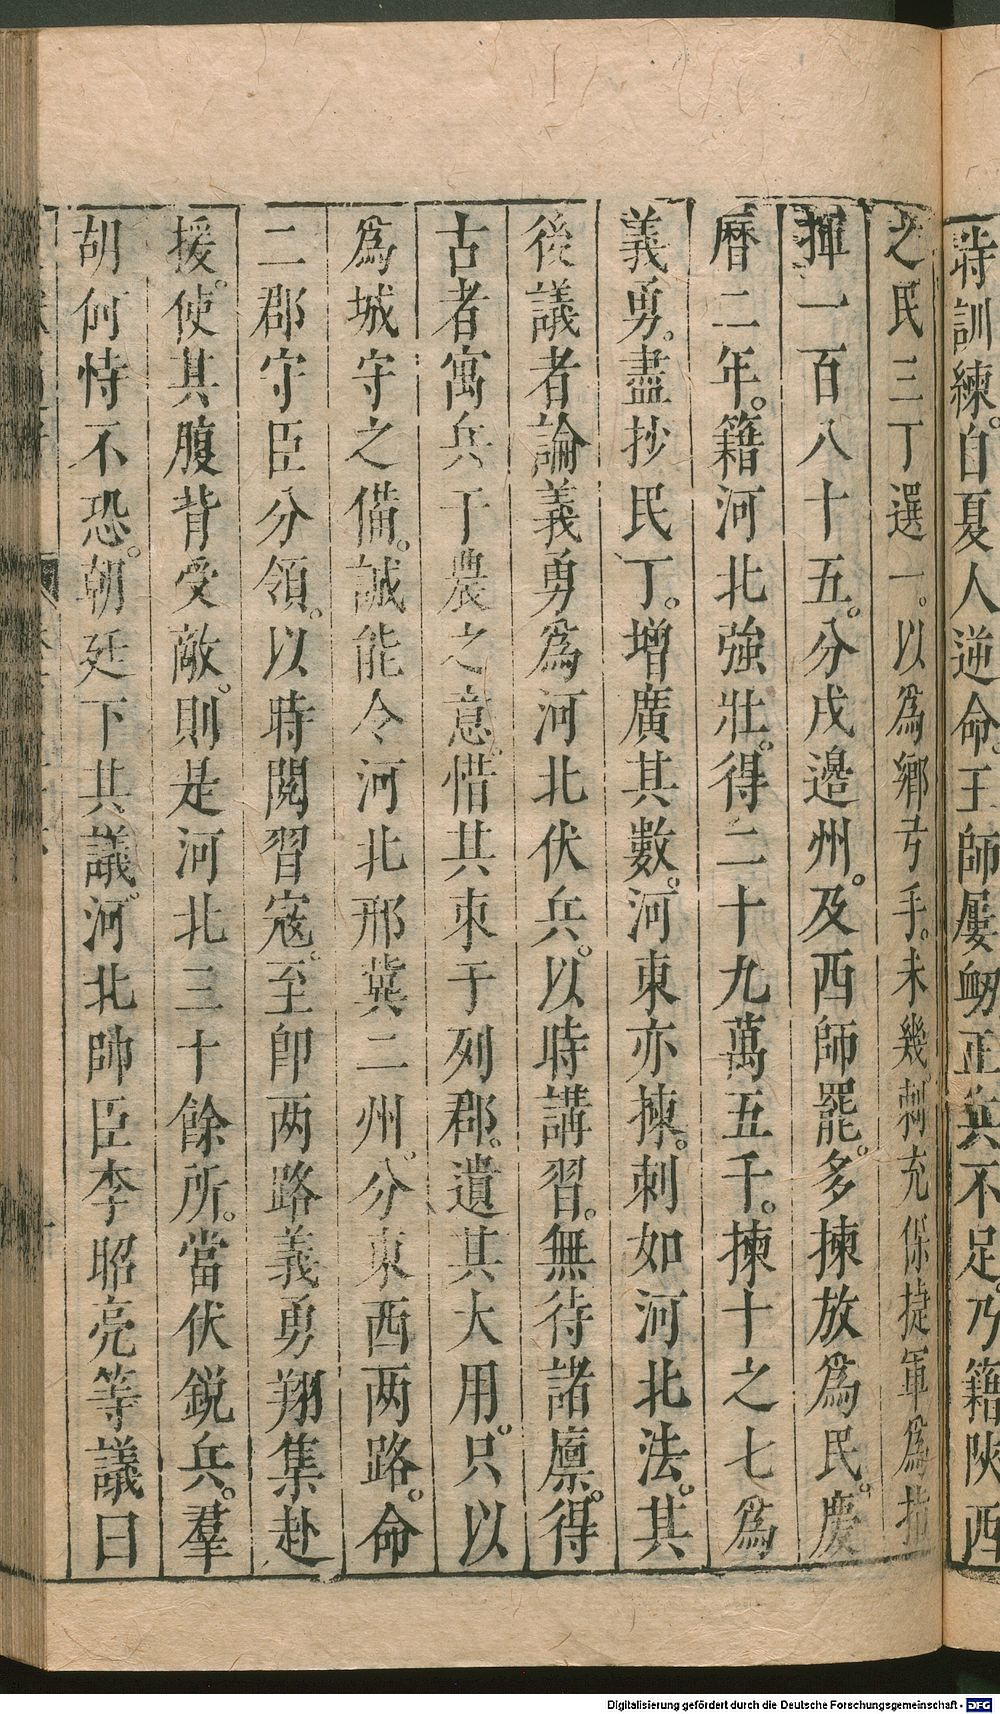 時訓練。自夏人逆命。王師屢衂。正兵不足。乃籍陝西
之民三丁選一。以爲鄉弓手。未幾。刺充保捷軍。爲指
揮一百八十五。分戍邊州。及西師罷。多揀放爲民。慶
曆二年。籍河北強壯。得二十九萬五千。揀十之七爲
義勇。盡抄民丁。增廣其數。河東亦揀。刺如河北法。其
後議者論義勇爲河北伏兵。以時講習。無待諸廪。得
古者寓兵于農之意。惜其束于列郡。遺其大用。只以
爲城守之備。誠能令河北邢冀二州。分東西两路。命
二郡守臣分領。以時閱習寇。至即两路義勇翔集赴
援。使其腹背受敵。則是河北三十餘所。當伏銳兵。羣
胡何恃不恐。朝廷下其議。河北帥臣李昭亮等議曰
Digitalisierung gefördert durch die Deutsche Forschungsgemeinschaft - DFG